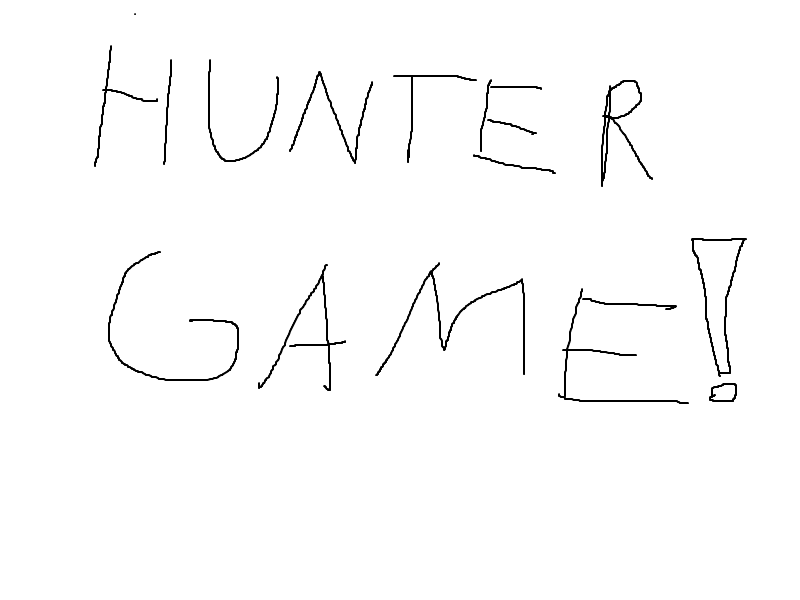 HUNTER
GAME!